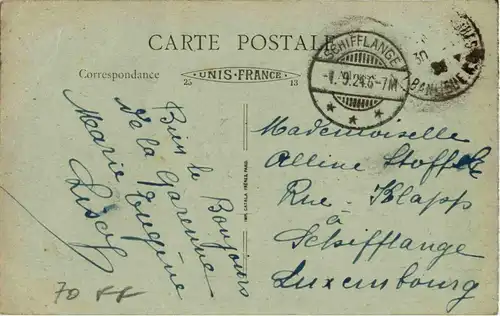 CARTE POSTALE
Correspondance
UNIS-FRANCE
25 13
SCHIFFLANGE
-1. 9.24.6-7M
30
Bien le Bonjours
de la Garenne
Marie Eugène
IMP. CATALA FRÈRES, PARIS
Mademoiselle
Alline Stoffel
Rue. Klapp
à
Schifflange
Luxembourg
70 FF